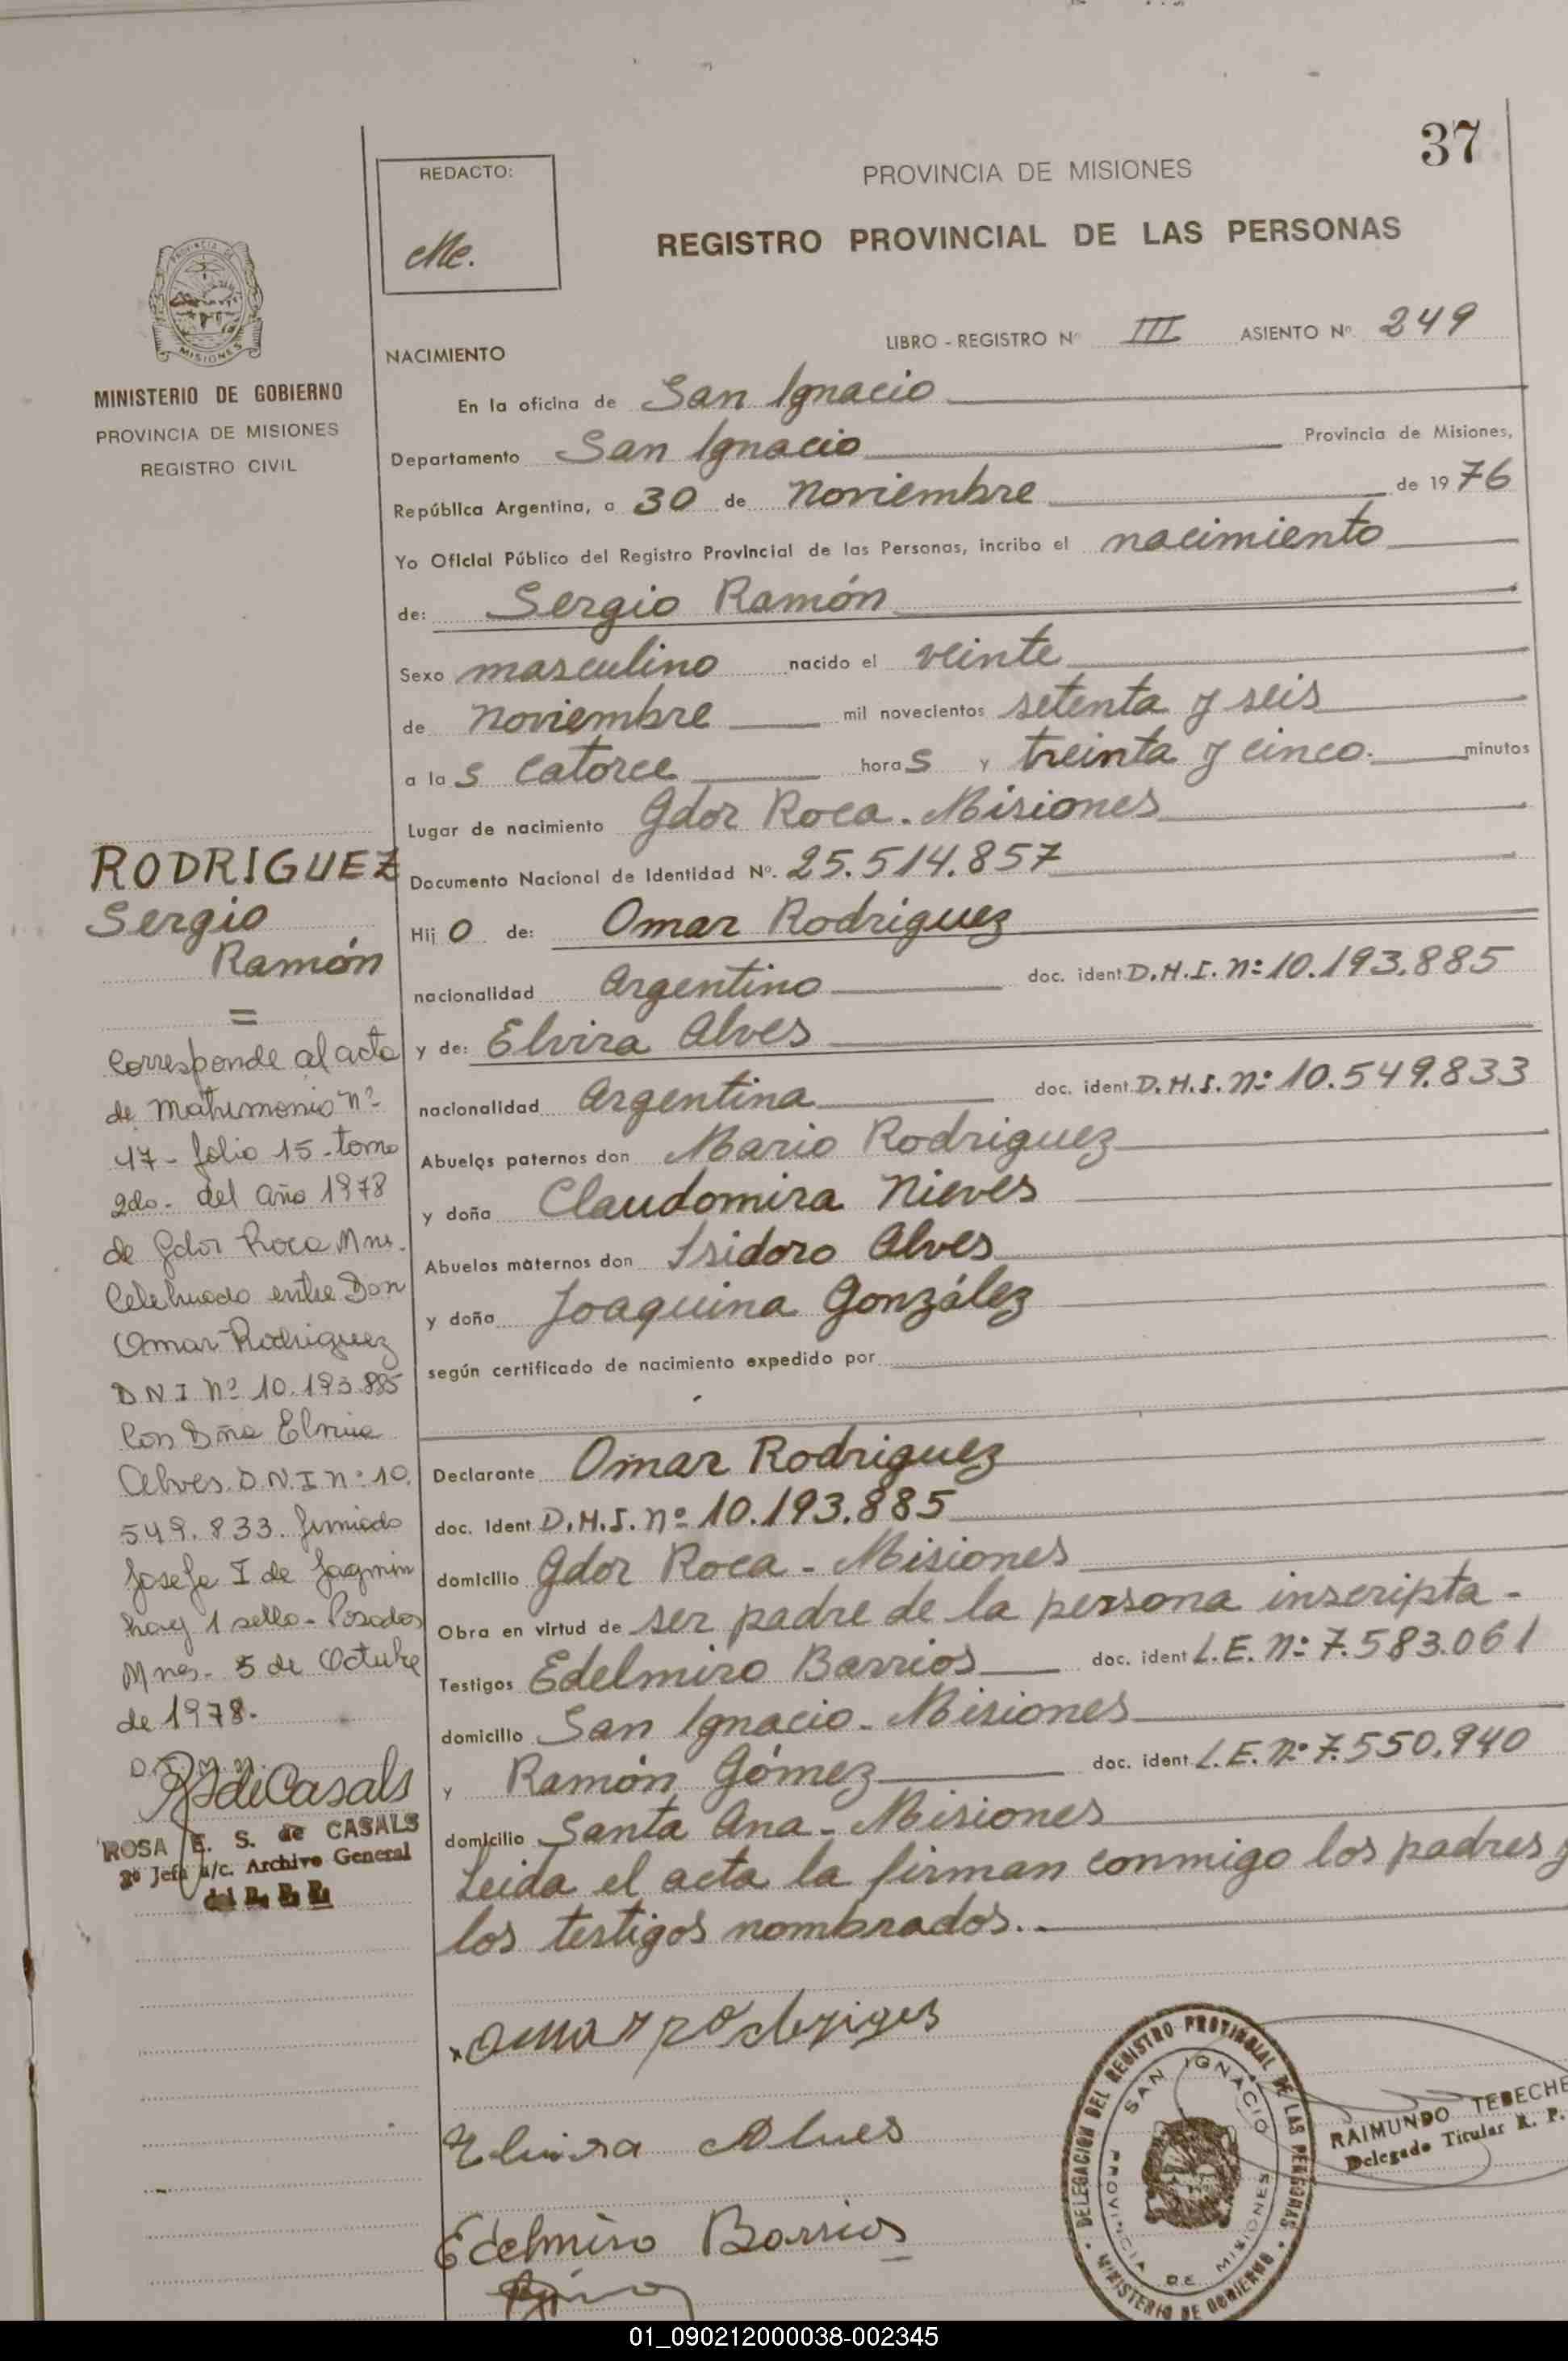 37
REDACTO:
Me.
PROVINCIA DE MISIONES
REGISTRO PROVINCIAL DE LAS PERSONAS
PROVINCIA DE
MISIONES
MINISTERIO DE GOBIERNO
PROVINCIA DE MISIONES
REGISTRO CIVIL
LIBRO - REGISTRO Nº III ASIENTO Nº 249
NACIMIENTO
En la oficina de San Ignacio
Departamento San Ignacio Provincia de Misiones,
República Argentina, a 30 de Noviembre de 1976
Yo Oficial Público del Registro Provincial de las Personas, incribo el nacimiento
de: Sergio Ramón
Sexo masculino nacido el veinte
de noviembre mil novecientos setenta y seis
a las catorce horas y treinta y cinco. minutos
Lugar de nacimiento Gdor Roca. Misiones
Documento Nacional de Identidad Nº. 25.514.857
Hijo de: Omar Rodriguez
nacionalidad Argentino doc. ident. D.N.I. nº 10.193.885
y de: Elvira Alves
nacionalidad Argentina doc. ident. D.N.I. nº 10.549.833
Abuelos paternos don Mario Rodriguez
y doña Claudomira Nieves
Abuelos maternos don Isidoro Alves
y doña Joaquina González
según certificado de nacimiento expedido por
Declarante Omar Rodriguez
doc. Ident D.N.I. nº 10.193.885
domicilio Gdor Roca - Misiones
Obra en virtud de ser padre de la persona inscripta -
Testigos Edelmiro Barrios doc. ident L.E. nº 7.583.061
domicilio San Ignacio - Misiones
y Ramón Gómez doc. ident L.E. nº 7.550.940
domicilio Santa Ana - Misiones
Leida el acta la firman conmigo los padres y
los testigos nombrados..
RODRIGUEZ
Sergio
Ramón
=
Corresponde al acta
de Matrimonio nº
17 - folio 15 - tomo
2do - del año 1978
de Gdor Roca Mnes.
Celebrado entre Don
Omar Rodriguez
D N I Nº 10.193.885
Con Dña Elvira
Alves. D.N.I nº 10.
549.833. firmado
Josefa I de
hay 1 sello - Posadas
Mnes. 5 de Octubre
de 1978.
RSdeCasals
ROSA E. S. de CASALS
2º Jefe a/c. Archivo General
del R. P. P.
Omar rodrigues
Elvira Alves
Edelmiro Barrios
DELEGACION DEL REGISTRO PROVINCIAL DE LAS PERSONAS
MINISTERIO DE GOBIERNO
SAN IGNACIO
PROVINCIA DE MISIONES
RAIMUNDO TEBECHE
Delegado Titular R. P.
01_090212000038-002345